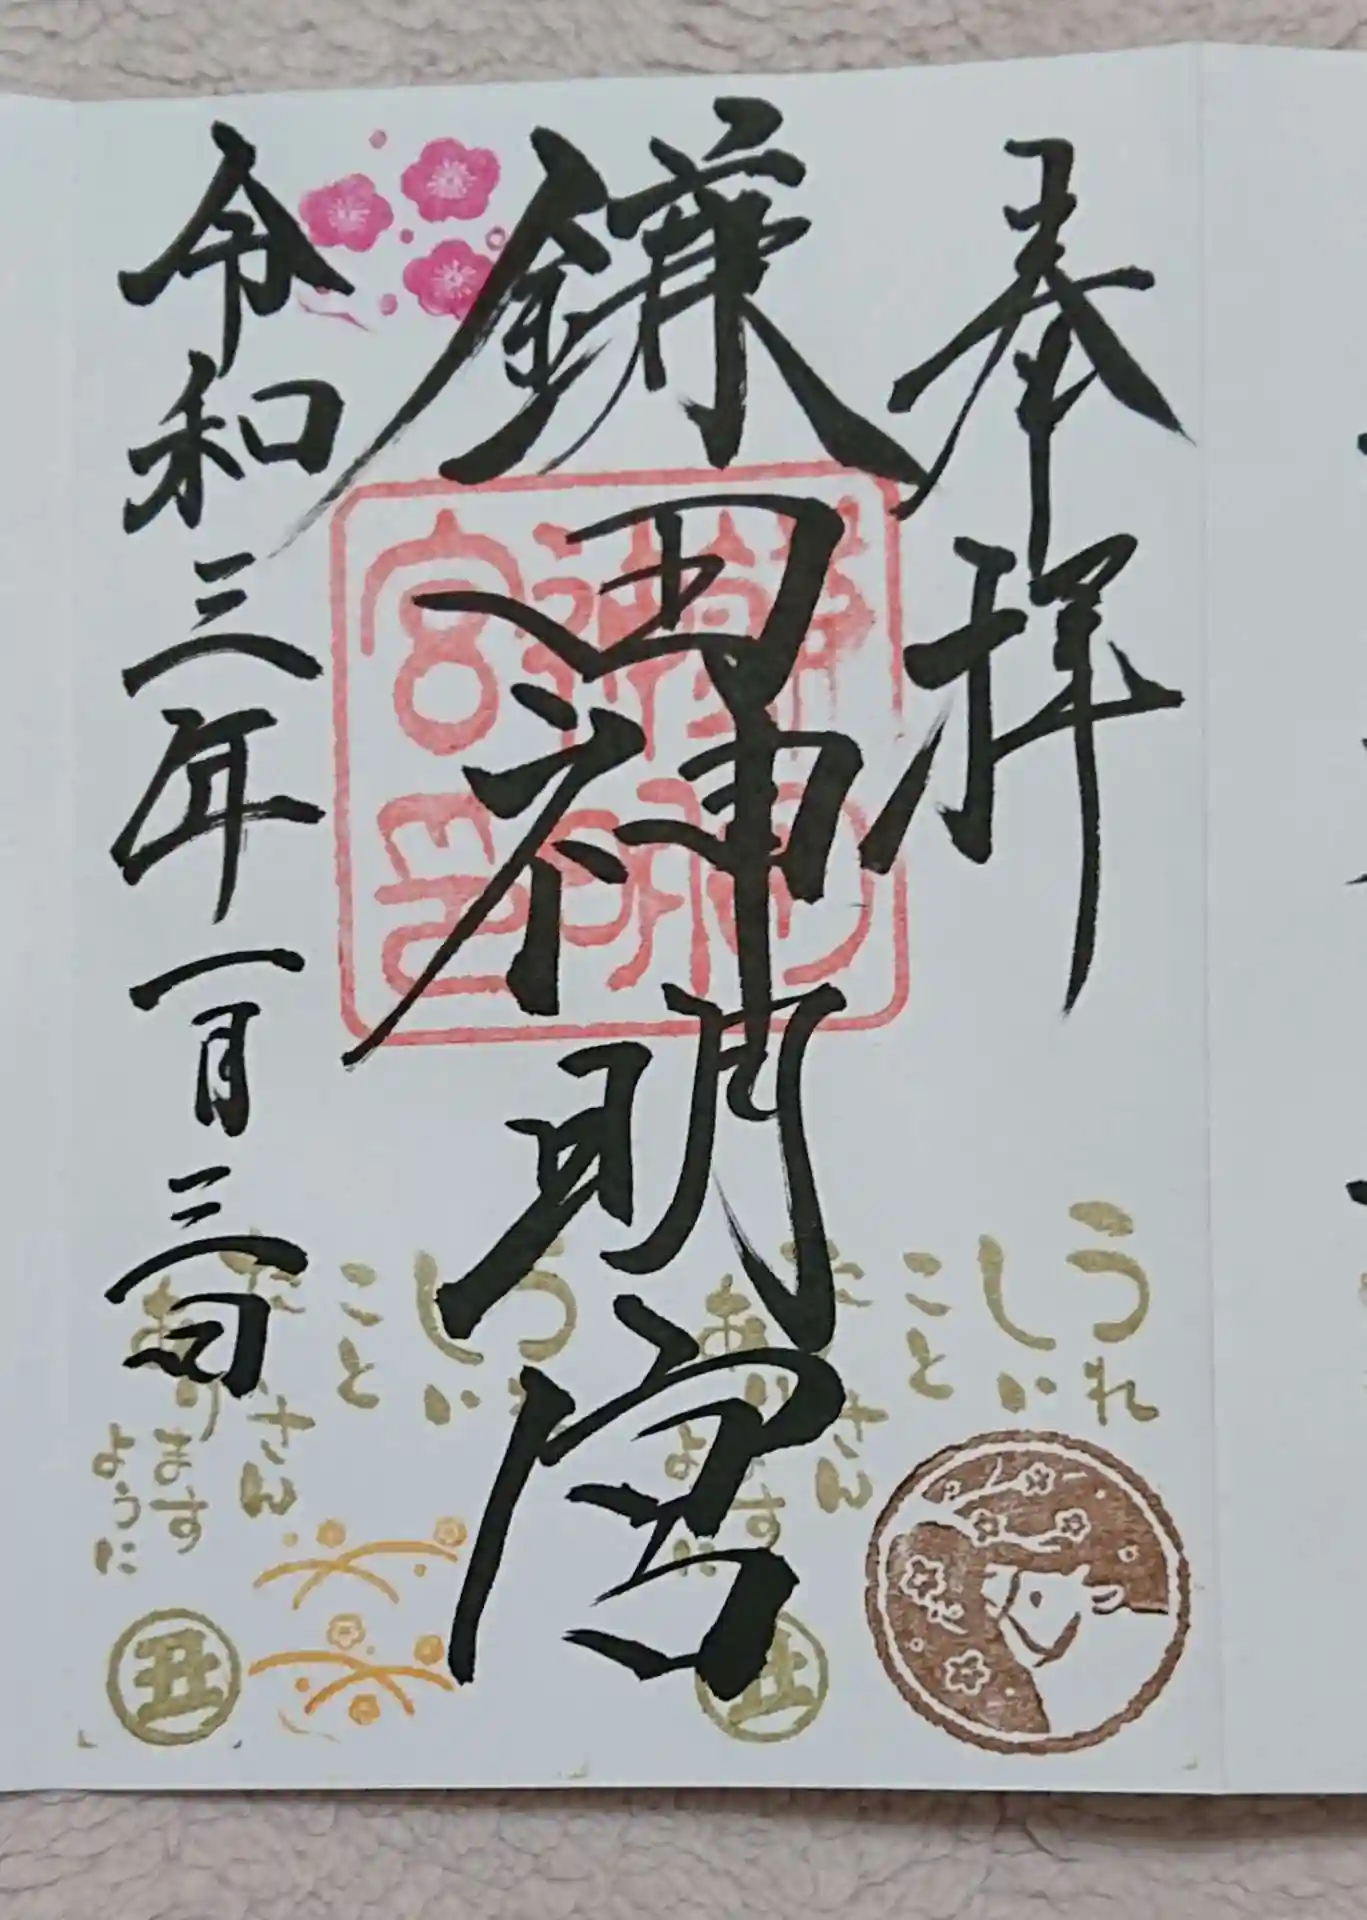 奉拝
鎌田神明宮
令和三年一月三日
うれ
しい
こと
たくさん
あります
ように
丑
うれ
しい
こと
たくさん
あります
ように
丑